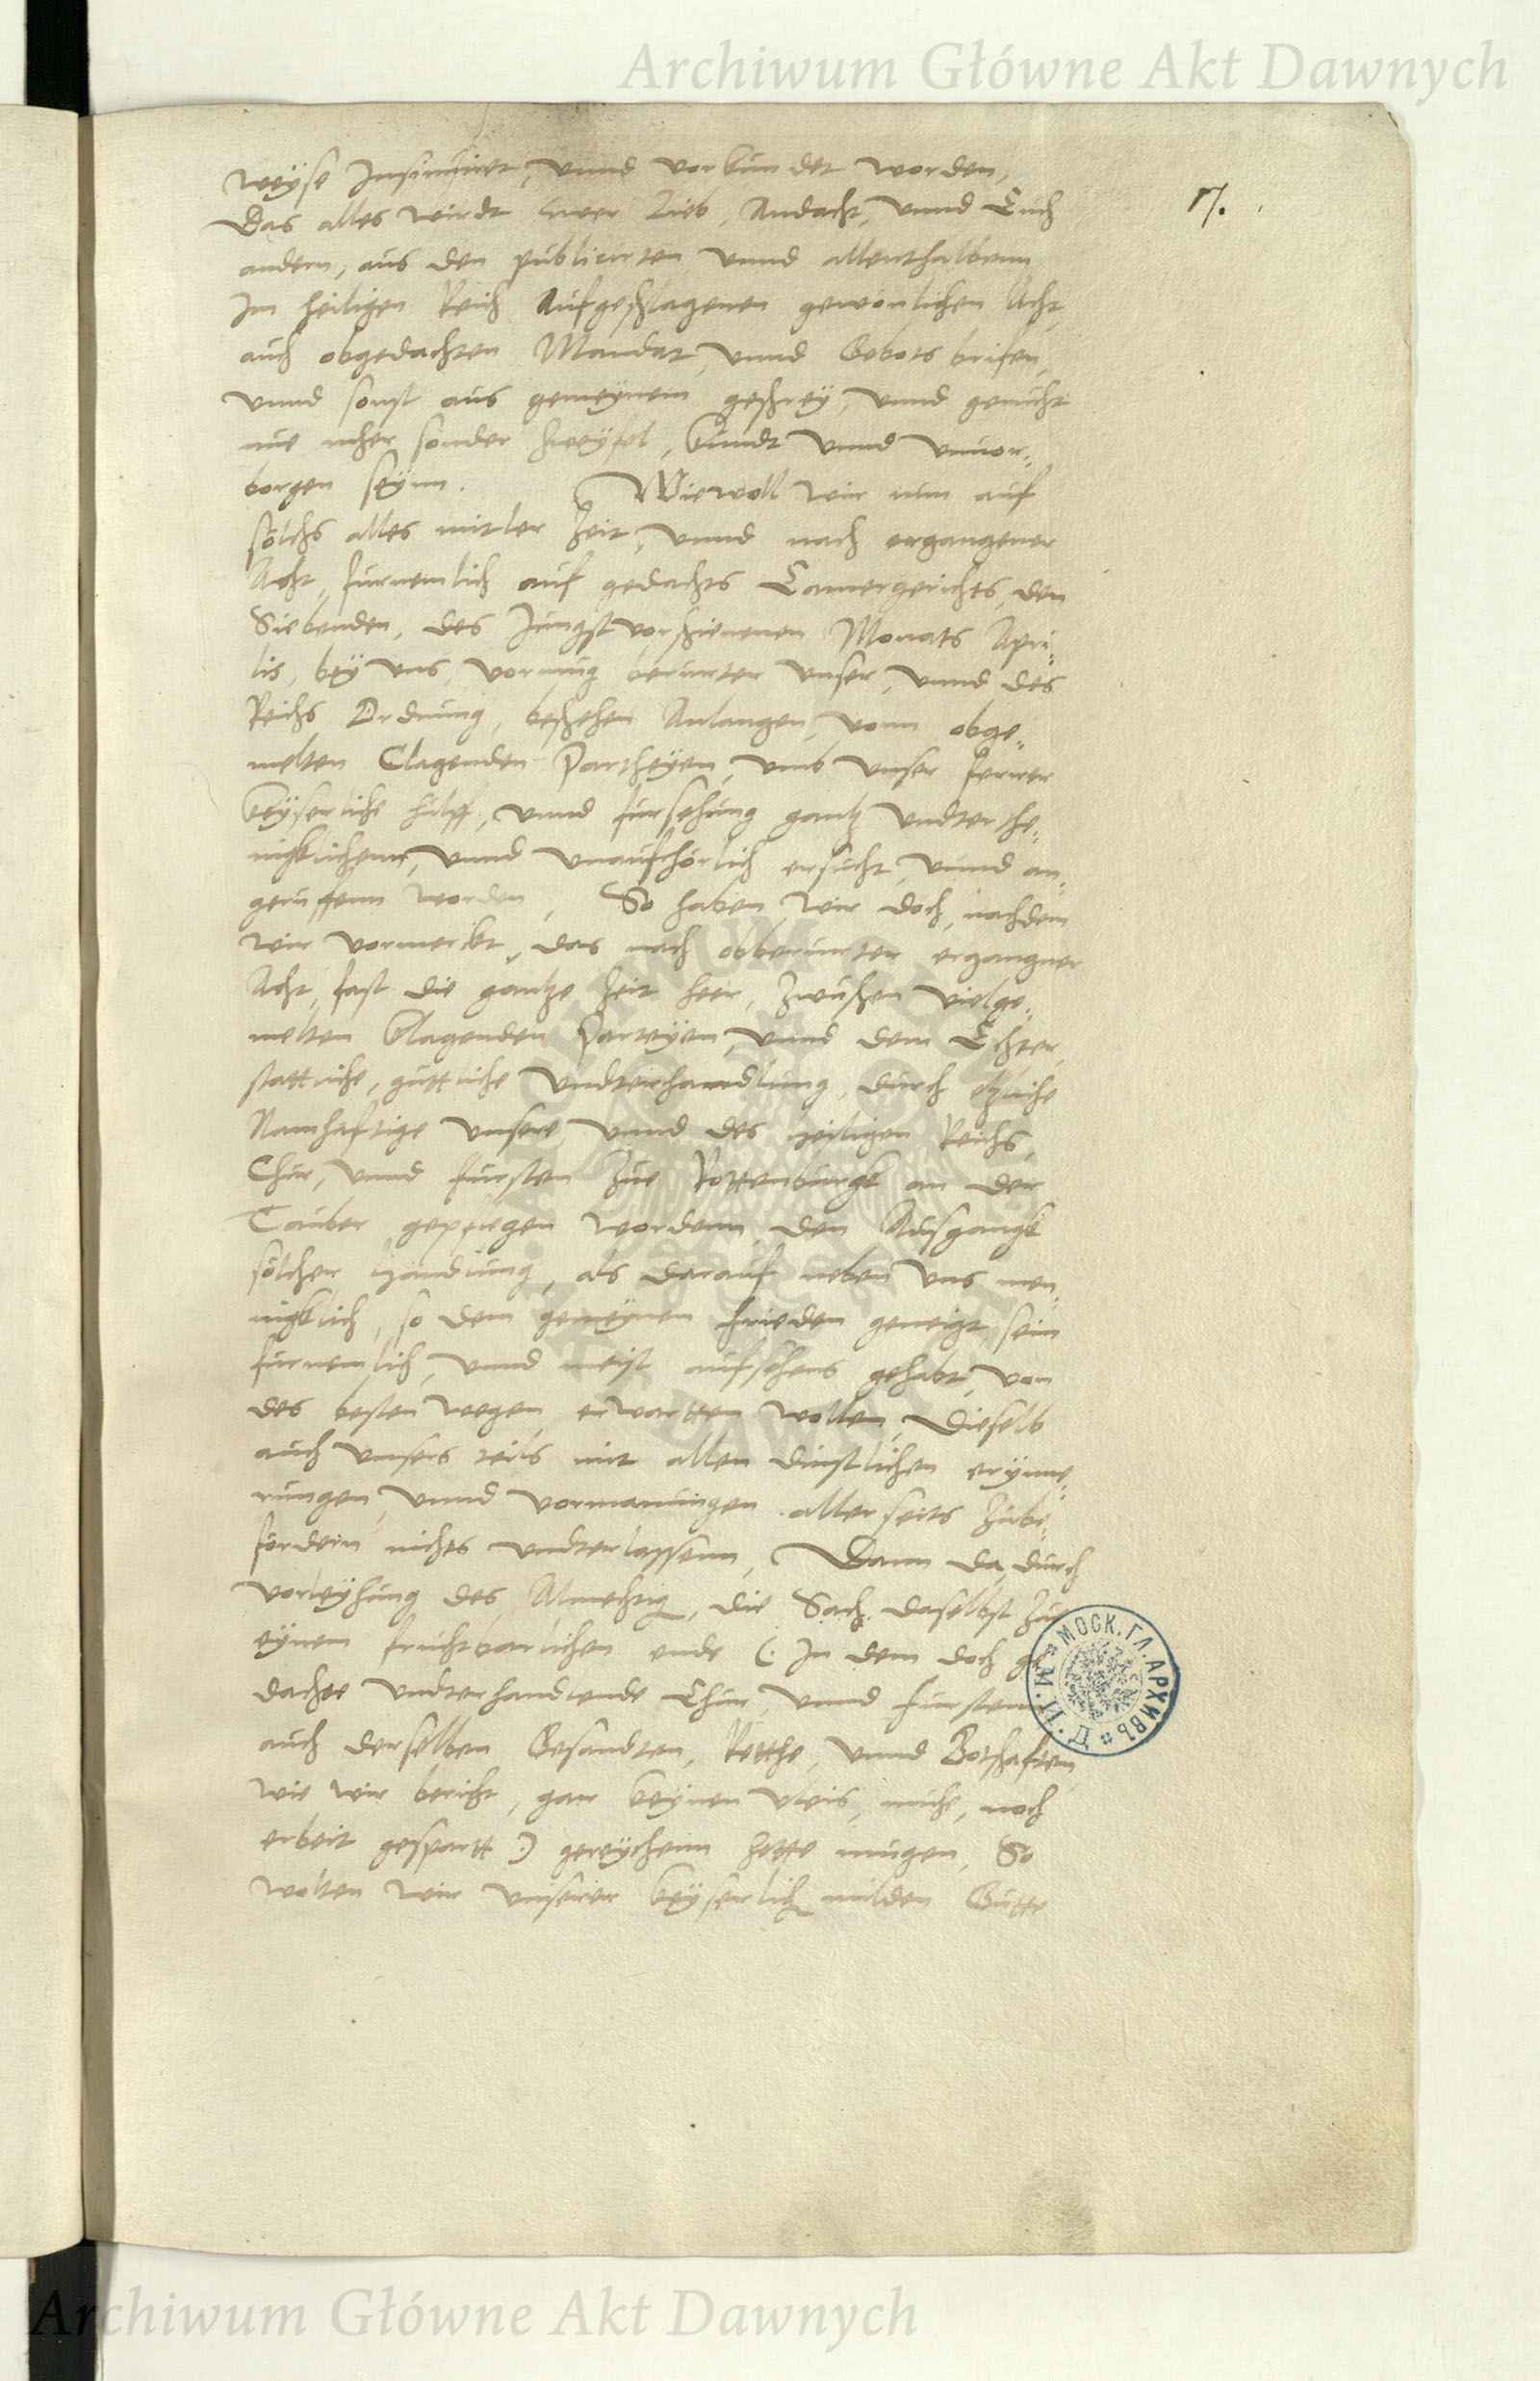 Archiwum Główne Akt Dawnych
weyse Insinuiret, vnnd vorkundet worden,
Das alles wirdt ewer Lieb, Andacht, vnnd Euch
17.
andern, aus den publicirten vnnd allenthalbenn
Im heiligen Reich Aufgeschlagenen gewonlichen Acht,
auch obgedachten Mandat, vnnd Gebots brifen,
vnnd sonst aus gemeynem geschrey, vnnd gerucht
nue mher sonder zweyfel, kundt vnnd vnuor„
borgen seynn. Wiewoll wir nun auf
solchs alles mitler Zeit, vnnd nach ergangener
Acht, furnemlich auf gedachts Camergerichts, den
Siebenden, des Jungstvorschienenen Monats Apri„
lis, bey vns, vormug berurter vnser, vnnd des
Reichs Ordnung, beschehen Anlangen, vonn obge„
melten Clagenden Partheyen, vmb vnser ferrer
keyserliche hulff, vnnd fursehung gantz vndterthe„
nigklichenn, vnnd vnaufhorlich ersucht, vnnd an„
geruffenn worden, So haben wir doch, nachdem
wir vormerkt, das nach obberurter ergangner
Acht, fast die gantze Zeit heer, Zwuschen vielge„
melten klagenden Parteyen, vnnd dem Echter,
stattliche, guttliche vndterhandlung, durch etzliche
Namhaftige vnsere, vnnd des heiligen Reichs,
Chur, vnnd fursten Zue Rottenburgk an der
Tauber gepflegen wordenn, den Ausgangk
solcher handlung, als darauf neben vns men„
nigklich, so dem gemeynen frieden geneigt, sein
furnemlich, vnnd meist aufsehens gehabt, von
des besten wegen erwartten wollen, Dieselb
auch vnsers teils mit allen dinstlichen erynne„
rungen, vnnd vormanungen allerseits Zube„
fordern nichts vndterlassenn, Dann da, durch
vorleyhung des Almechtig, die Sach, daselbst Zu
eynem fruchtbarlichen ende (: In dem doch ge
dachte vndterhandlende Chur, vnnd fursten
auch derselben Gesandten, Rethe, vnnd Botschaften,
wie wir bericht, gar keynen vleis, muhe, noch
erbeit gespartt :) gereychenn hette mugen, So
wolten wir vnserer keyserlich milden Gutte
МОСК. ГЛ. АРХИВЪ
М. И. Д.
Archiwum Główne Akt Dawnych